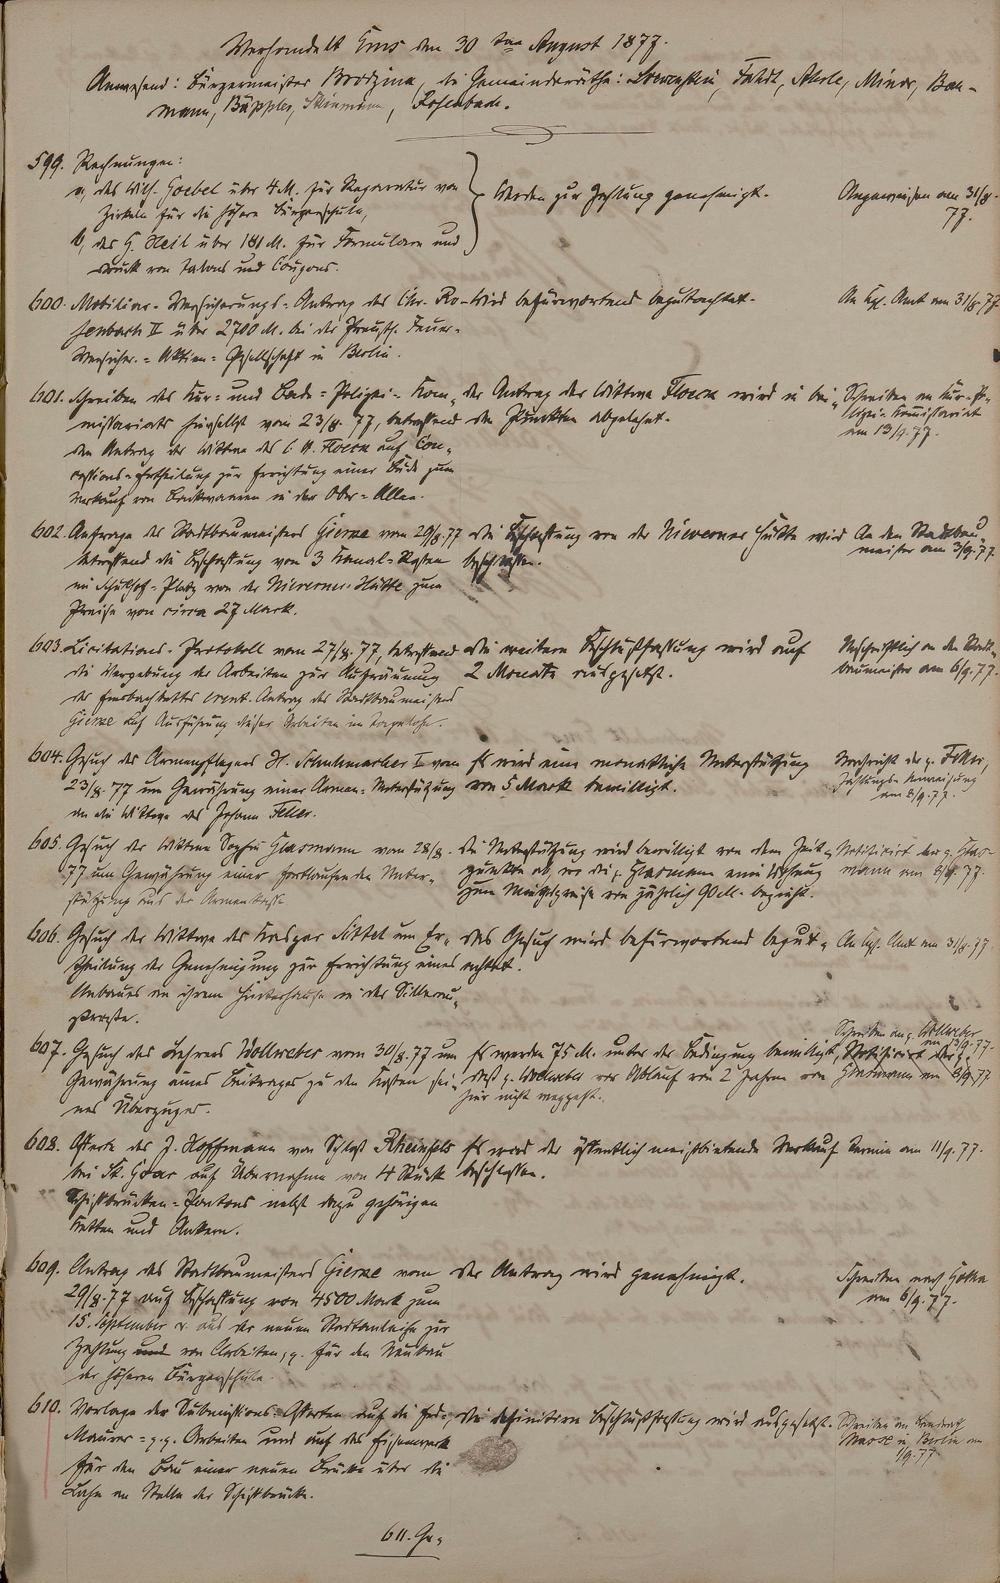 Verhandelt Ems den 30ten August 1877.
Anwesend: Bürgermeister Brodzina, die Gemeinderäthe: Loewenstein, Fahdt, Merle, Minor, Bau-
mann, Büppler, Rosenbach.
599. Rechnungen:
a, des Wilh. Goebel über 4 M. für Reparatur von
Zirkeln für die höhere Bürgerschule,
b, des G. Heil über 181 M. für Formulare und
Druck von Talons und Coupons.
Werden zur Zahlung genehmigt.
Angewiesen am 31/8.
77.
600. Mobiliar-Versicherungs-Antrag des Chr. Ro-
senbach II über 2700 M. bei der Preuss. Feuer-
Versicher.=Aktien=Gesellschaft in Berlin.
Wird befürwortend begutachtet.
An Kgl. Amt am 31/8.77.
601. Schreiben des Kur- und Bade-Polizei-Kom-
missariats hierselbst vom 23/8.77, betreffend
den Antrag der Wittwe des Floeck auf Con-
cessions-Ertheilung zur Errichtung einer Bude zum
Verkauf von Backwaaren in der Ober-Allee.
Der Antrag der Wittwe Floeck wird in bei-
den Punkten abgelehnt.
Schreiben an Kur-Po-
lizei-Kommissariat
am 13/9.77.
602. Anfrage des Stadtbaumeisters Giese vom 29/8.77
betreffend die Beschaffung von 3 Kanal-Rosten
im Schulhof-Platz von der Nieverner-Hütte zum
Preise von circa 27 Mark.
Die Beschaffung von der Nieverner Hütte wird
beschlossen.
An den Stadtbau-
meister am 3/9.77
603. Licitations-Protokoll vom 27/8.77, betreffend
die Vergebung der Arbeiten zur Aufräumung
des Emsbachbettes event. Antrag des Stadtbaumeisters
Giese auf Ausführung dieser Arbeiten im Tagelohn.
Die weitere Beschlußfassung wird auf
2 Monate ausgesetzt.
Abschriftlich an den Stadt-
baumeister am 6/9.77.
604. Gesuch des Armenpflegers H. Schuhmacher I vom
23/8.77 um Gewährung einer Armen-Unterstützung
an die Wittwe des Johann Feller.
Es wird eine monatliche Unterstützung
von 5 Mark bewilligt.
Nachricht der p. Feller,
Zahlungs-Anweisung
am 8/9.77.
605. Gesuch der Wittwe Sophie Glasmann vom 28/8.
77 um Gewährung einer fortlaufenden Unter-
stützung aus der Armenkasse
Die Unterstützung wird bewilligt von dem Zeit-
punkte ab, wo die p. Glasmann eine Wohnung
zum Miethpreise von jährlich 90 M. bezieht.
Notificirt der p. Glas-
mann am 8/9.77.
606. Gesuch der Wittwe des Kaspar Sittel um Er-
theilung der Genehmigung zur Errichtung eines
Anbaues an ihrem Hinterhause in der Silberau-
straße.
Das Gesuch wird befürwortend begut-
achtet.
An Kgl. Amt am 31/8.77
607. Gesuch des Lehrers Wollweber vom 30/8.77 um
Gewährung eines Beitrages zu den Kosten sei-
nes Überzuges.
Es werden 75 M. unter der Bedingung bewilligt,
daß p. Wollweber vor Ablauf von 2 Jahren von
hier nicht weggeht.
Schreiben an p. Wollweber
am 13/9.77.
Notificirt der p.
Glasmann am 8/9.77
608. Offerte des J. Hoffmann von Schloß Rheinfels
bei St. Goar auf Übernahme von 4 Stück
Schiffbrücken=Pontons nebst dazu gehörigen
Ketten und Ankern.
Es wird der öffentlich meistbietende Verkauf
beschlossen.
Termin am 11/9.77.
609. Antrag des Stadtbaumeisters Giese vom
29/8.77 auf Beschaffung von 4500 Mark zum
15. September cr. aus der neuen Stadtanleihe zur
Zahlung und von Arbeiten, p. für den Neubau
der höheren Bürgerschule.
Der Antrag wird genehmigt.
Schreiben nach Gotha
am 6/9.77.
610. Vorlage der Submissions-Offerten auf die Erd-
Maurer- p.p. Arbeiten und auf das Eisenwerk
für den Bau einer neuen Brücke über die
Lahn an Stelle der Schiffbrücke.
Die definitive Beschlußfassung wird ausgesetzt.
Schreiben an
Masse in Berlin am
1/9.77
611. Ge-